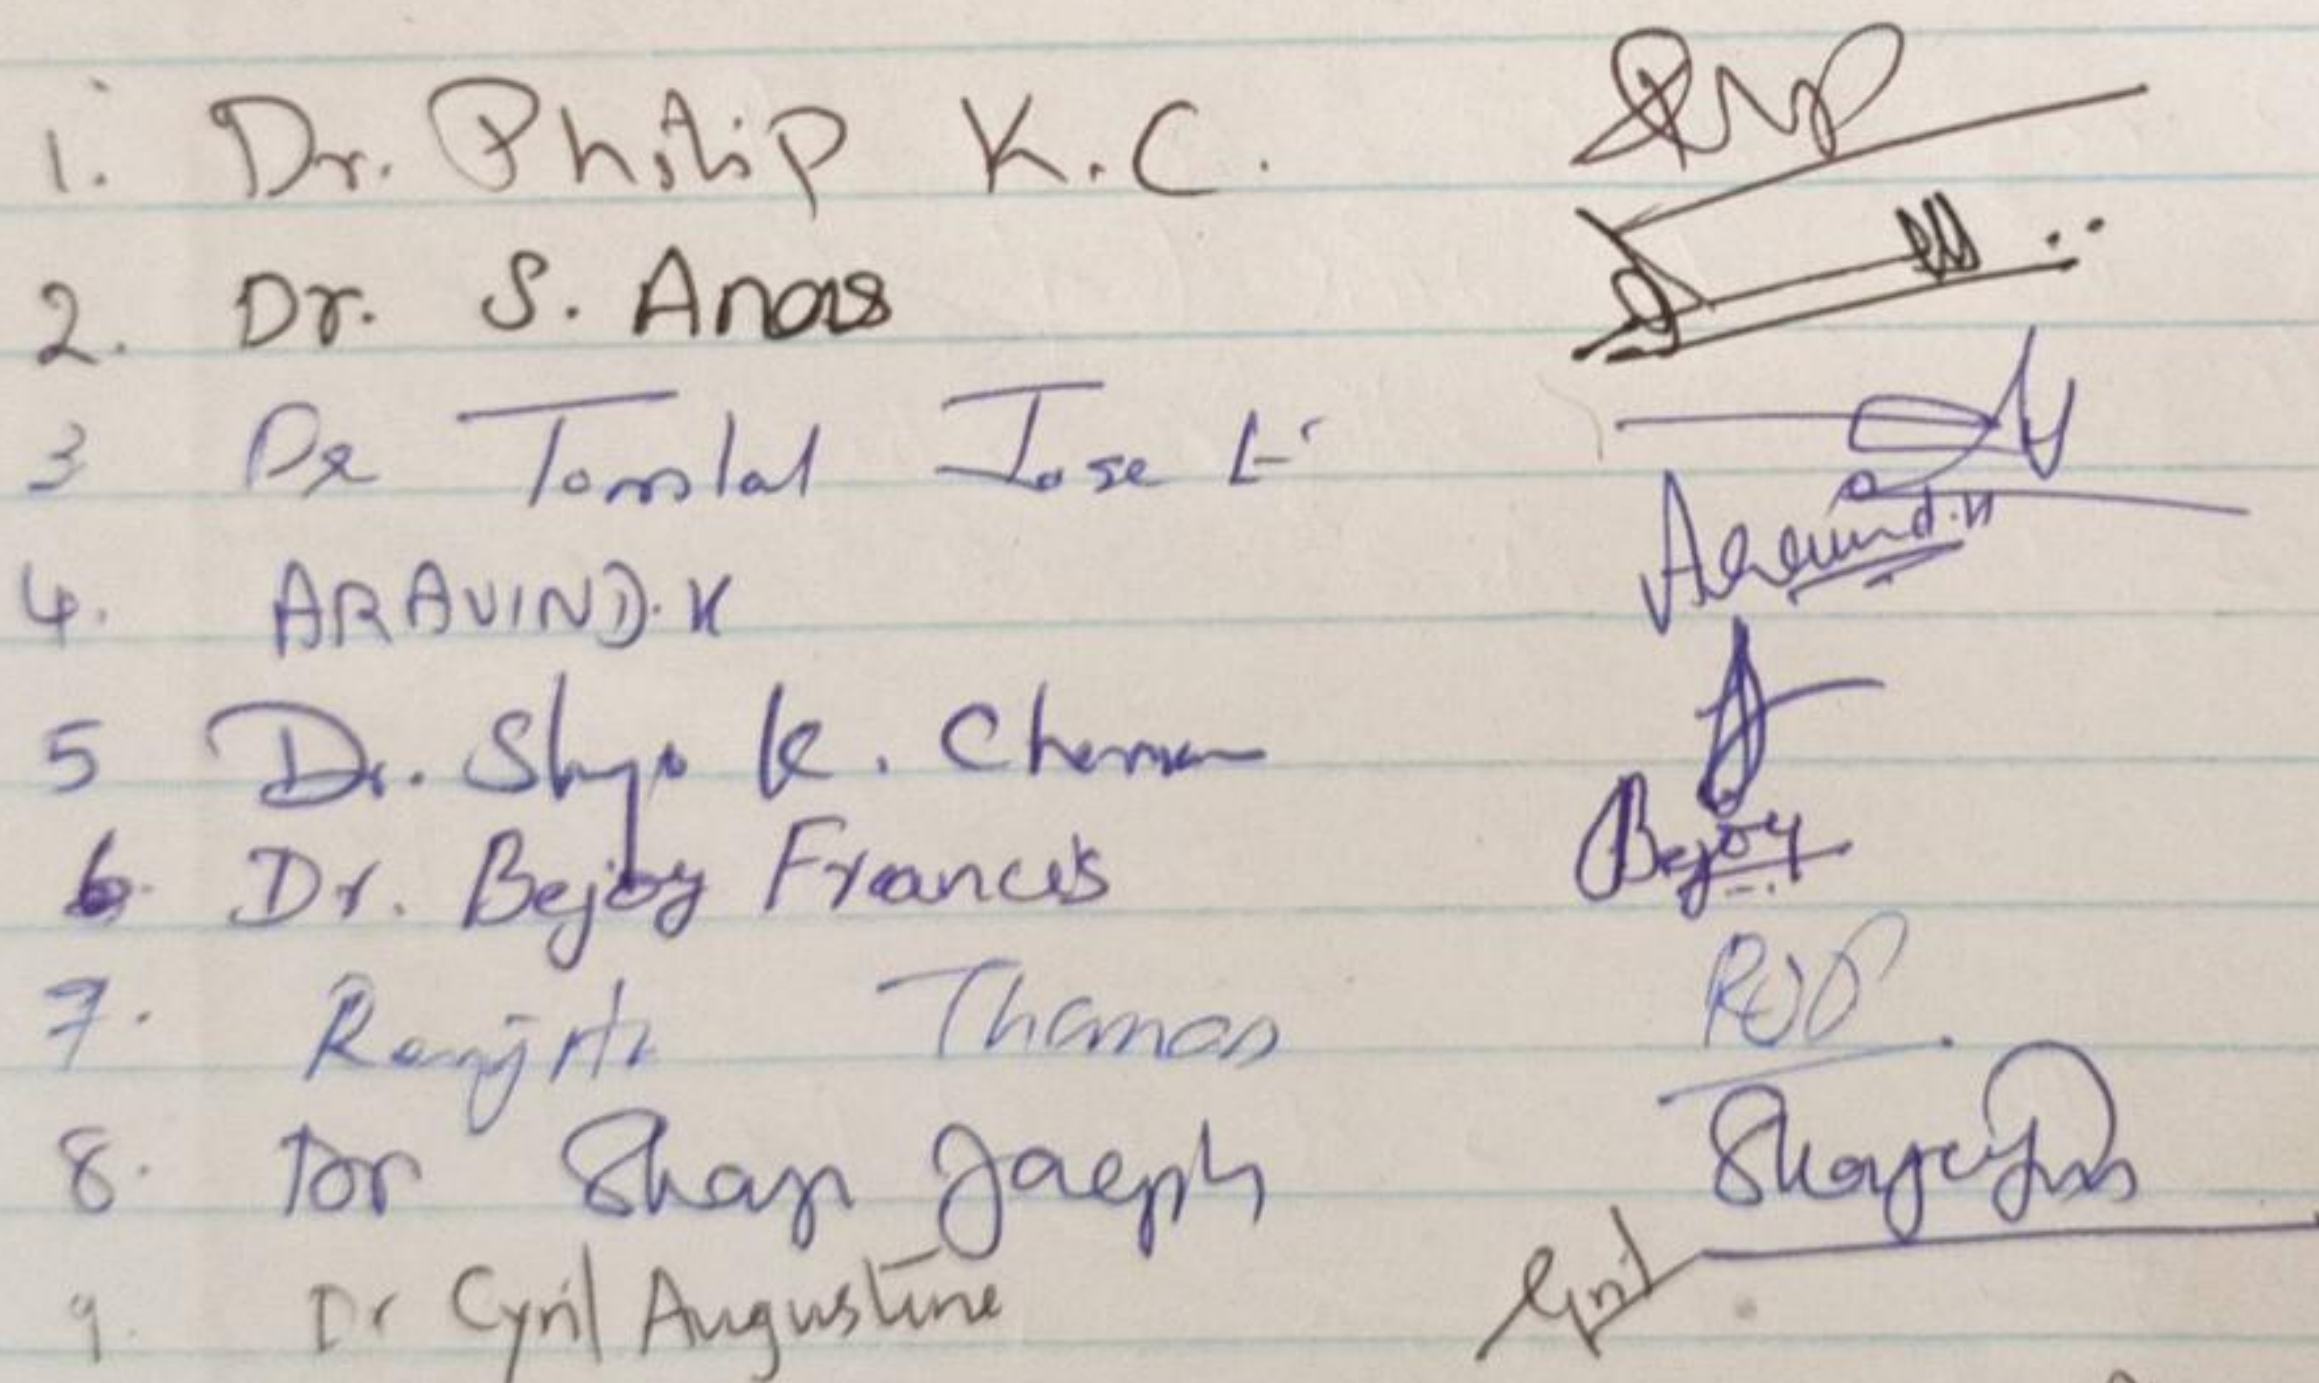 1. Dr. Philip K.C.
2. Dr. S. Anas
3 Dr Tomlal Jose E
4. ARAVIND.K Aravind.K
5 Dr. Shyo K. Cherian
6. Dr. Bejoy Francis Bejoy
7. Ranjith Thomas
8. Dr Shaji Joseph
9. Dr Cyril Augustine Cyril